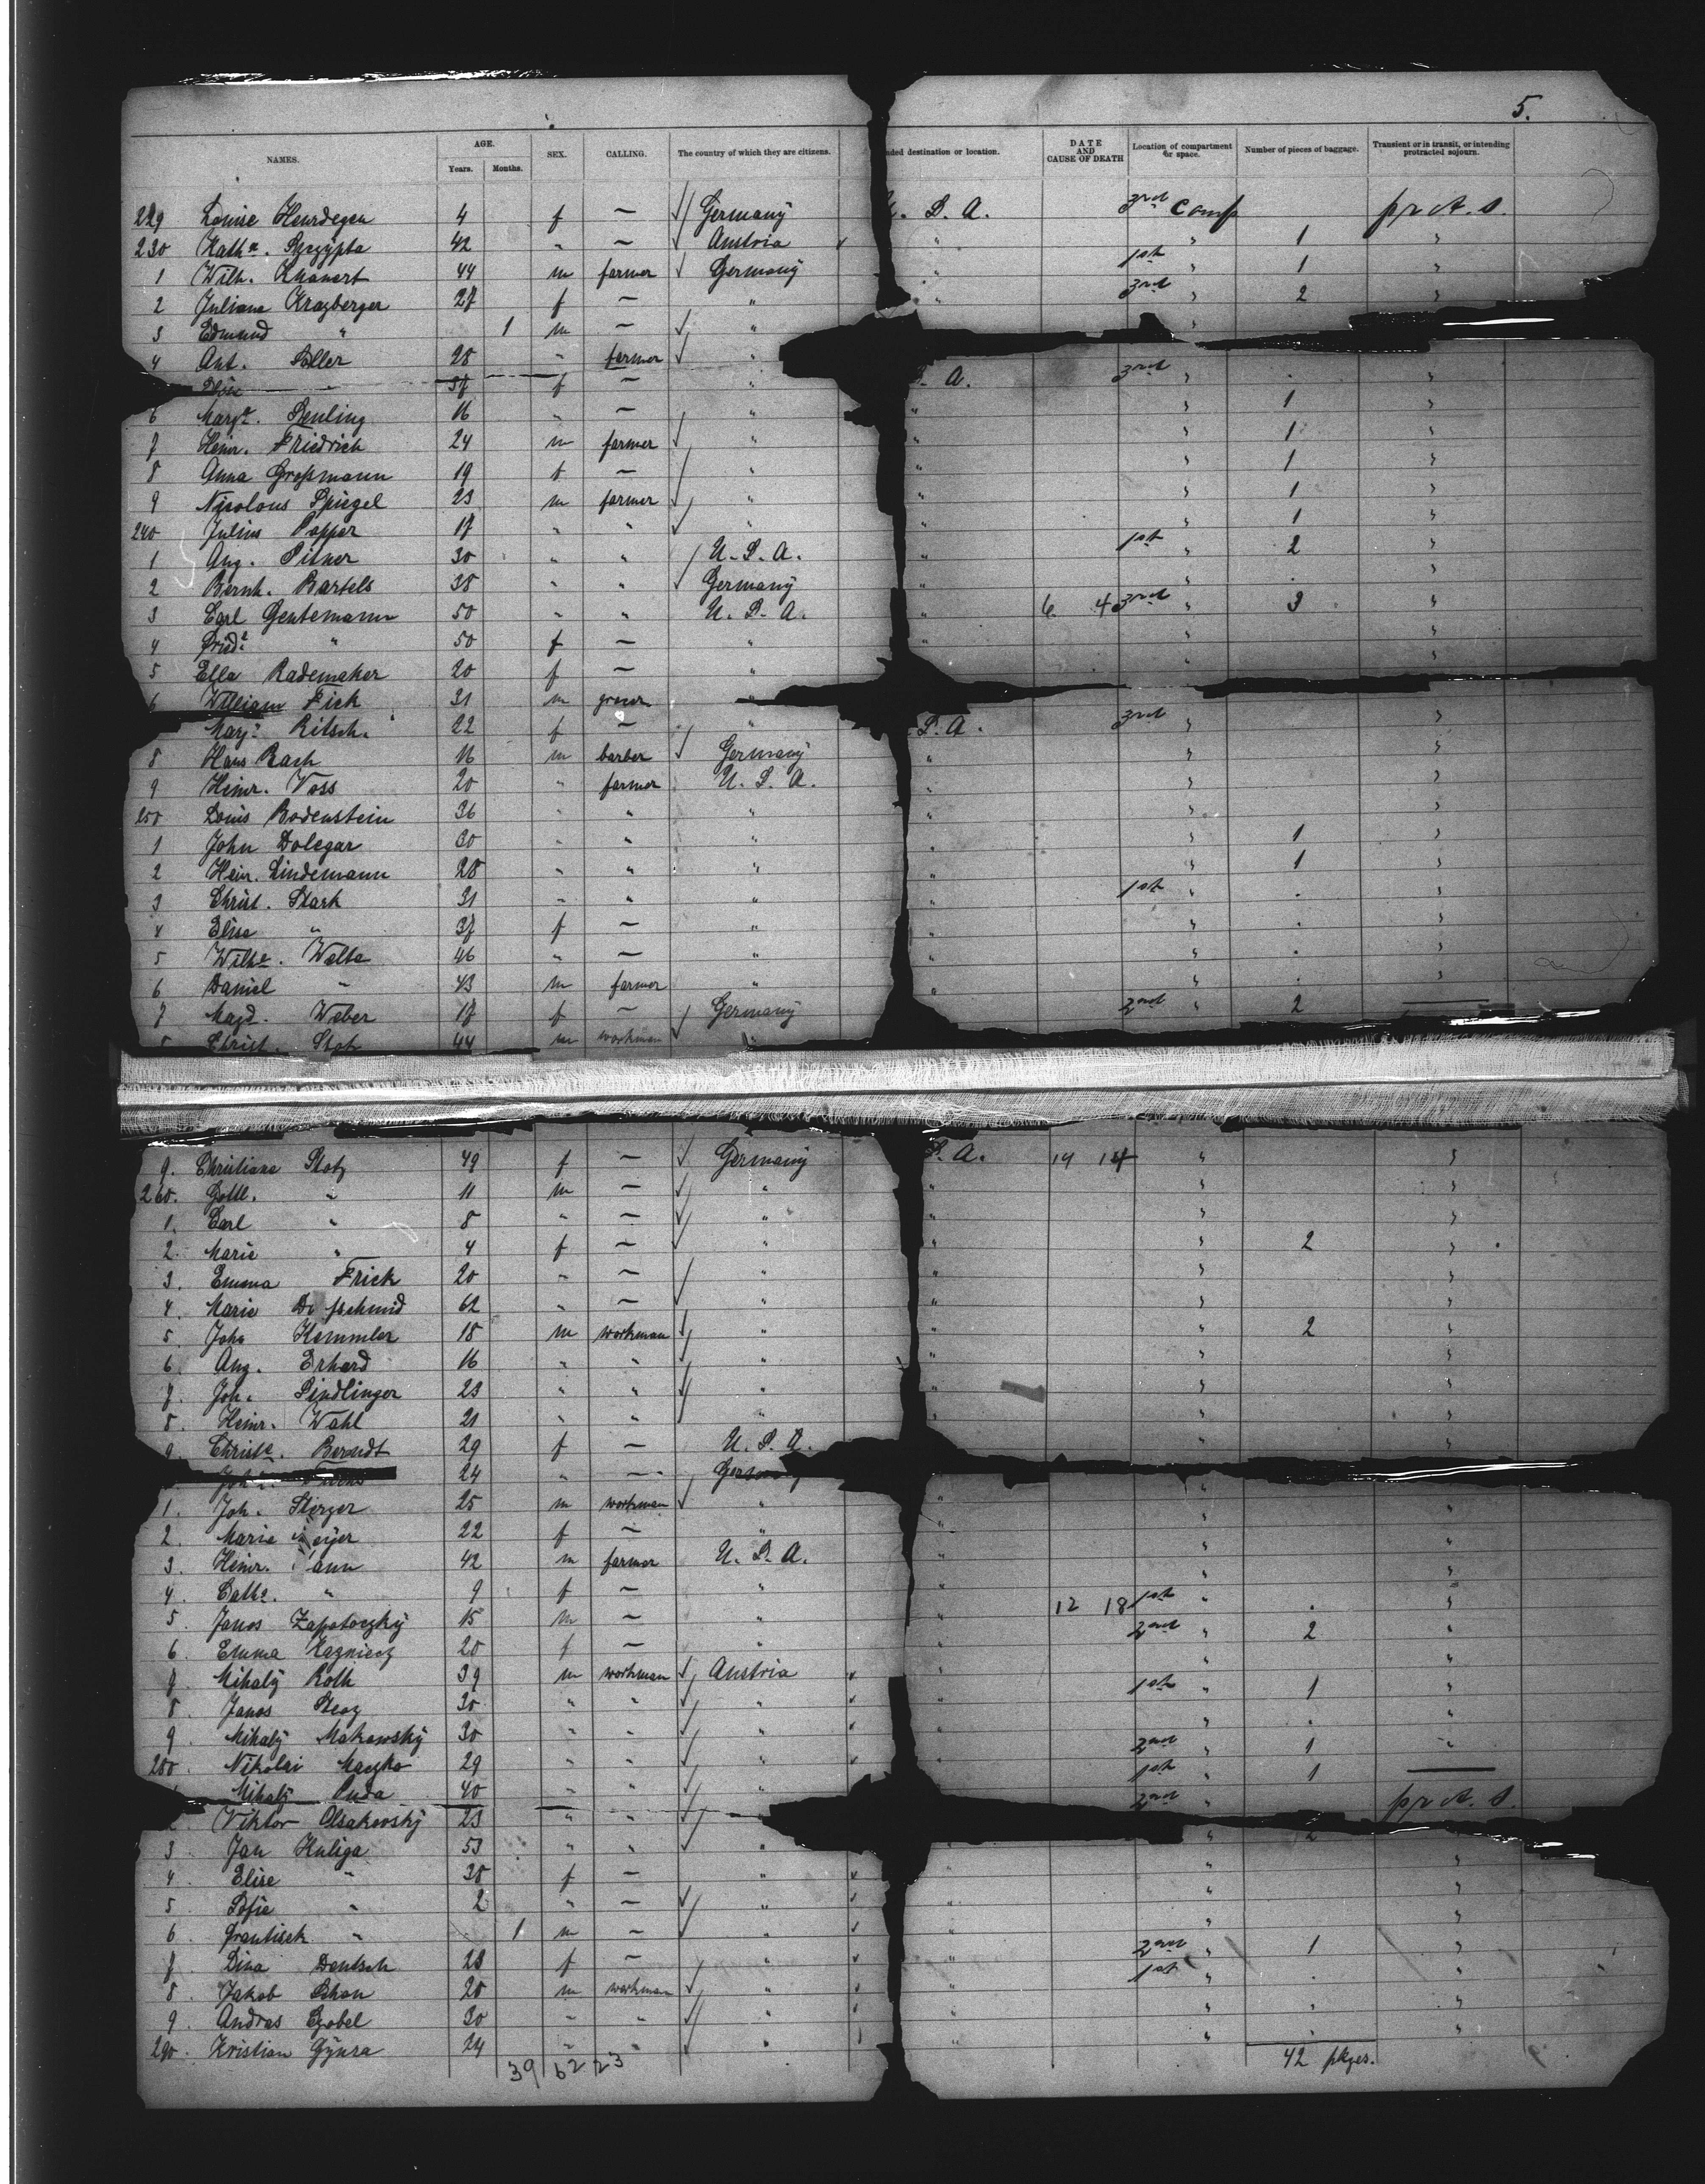 5.
NAMES. AGE. Years. Months. SEX. CALLING. The country of which they are citizens. nded destination or location. DATE AND CAUSE OF DEATH Location of compartment or space. Number of pieces of baggage. Transient or in transit, or intending protracted sojourn.
229 Louise Heurdegen 4 f — Germany U. S. A. 3rd Comp pr A. S.
230 Kath. 42 " — Austria " " 1 "
1 Wilh. 44 m farmer Germany " 1st " 1 "
2 Juliane Krazberger 27 f — " " 3rd " 2 "
3 Edmund " 1 m — " "
4 Ant. Soller 28 " farmer "
37 f — " S. A. 3rd " "
6 Marg. Senling 16 " — " " " 1 "
7 Heinr. Friedrich 24 m farmer " " " 1 "
8 Anna Großmann 19 f — " " " 1 "
9 Nicolaus Spiegel 23 m farmer " " " 1 "
240 Julius Popper 17 " " " " " 1 "
1 Aug. Pitner 30 " " U. S. A. " 1st " 2 "
2 Bernh. Bartels 38 " " Germany " " "
3 Carl Gentemann 50 " " U. S. A. " 6 4 3rd " 3 "
4 Fried. " 50 f — " " " "
5 Ella Rademaker 20 f — " " "
6 William Fick 31 m grocer "
Marg. Ritsch. 22 f — " S. A. 3rd " "
8 Hans Bach 16 m barber Germany " " "
9 Heinr. Voss 20 " farmer U. S. A. " " "
250 Louis Bodenstein 36 " " " " " "
1 John Dolegar 30 " " " " " 1 "
2 Heinr. Lindemann 28 " " " " " 1 "
3 Christ. Stark 31 " " " " 1st " "
4 Elise " 37 f — " " " "
5 Wilhe. Walta 46 " — " " " "
6 Daniel " 43 m farmer " " " "
7 Magd. Weber 17 f — Germany 2nd " 2
8 Christ. Stotz 44 m workman "
9. Christiane Stotz 49 f — Germany S. A. 14 14 " "
260. Gottl. " 11 m — " " " "
1. Carl " 8 " — " " " "
2. Marie " 4 f — " " " 2 "
3. Emma Frick 20 " — " " " "
4. Marie 62 " — " " " "
5. Johs Kemmler 18 m workman " " " 2 "
6. Aug. Erhard 16 " " " " " "
7. Joh. Sindlinger 23 " " " " " "
8. Heinr. Wahl 21 " " " " " "
9. Christe. Berndt 29 f — U. S. A. " "
24 " — Germany "
1. Joh. Sterzer 25 m workman " " " "
2. Marie 22 f — " " " "
3. Heinr. 42 m farmer U. S. A. " " "
4. Cath. " 9 f — " " 12 18 1st " "
5. Janos Zapotoczky 15 m — " " 2nd " 2 "
6. Emma 20 f — " " " "
7. Mihaly Roth 39 m workman Austria " 1st " 1 "
8. Janos 30 " " " " " "
9. Mihaly Makowsky 30 " " " " 2nd " 1 "
280. Nikolai Maczko 29 " " " " 1st " 1
Mihaly Puda 40 " " " 2nd " pr A. S.
2. Viktor Olsakovsky 23 " " " 2
3. Jan Kuliga 53 " " " " " "
4. Elise " 38 f — " " " "
5. Sofie " 2 " — " " " "
6. Frantisek " 1 m — " " " "
7. Dina Deutsch 23 f — " " 2nd " 1 "
8. Jakob 20 m workman " " 1st " "
9. Andras Czobel 30 " " " " " "
290. Kristian 24 " " " " " "
39 62 23 42 pkges.